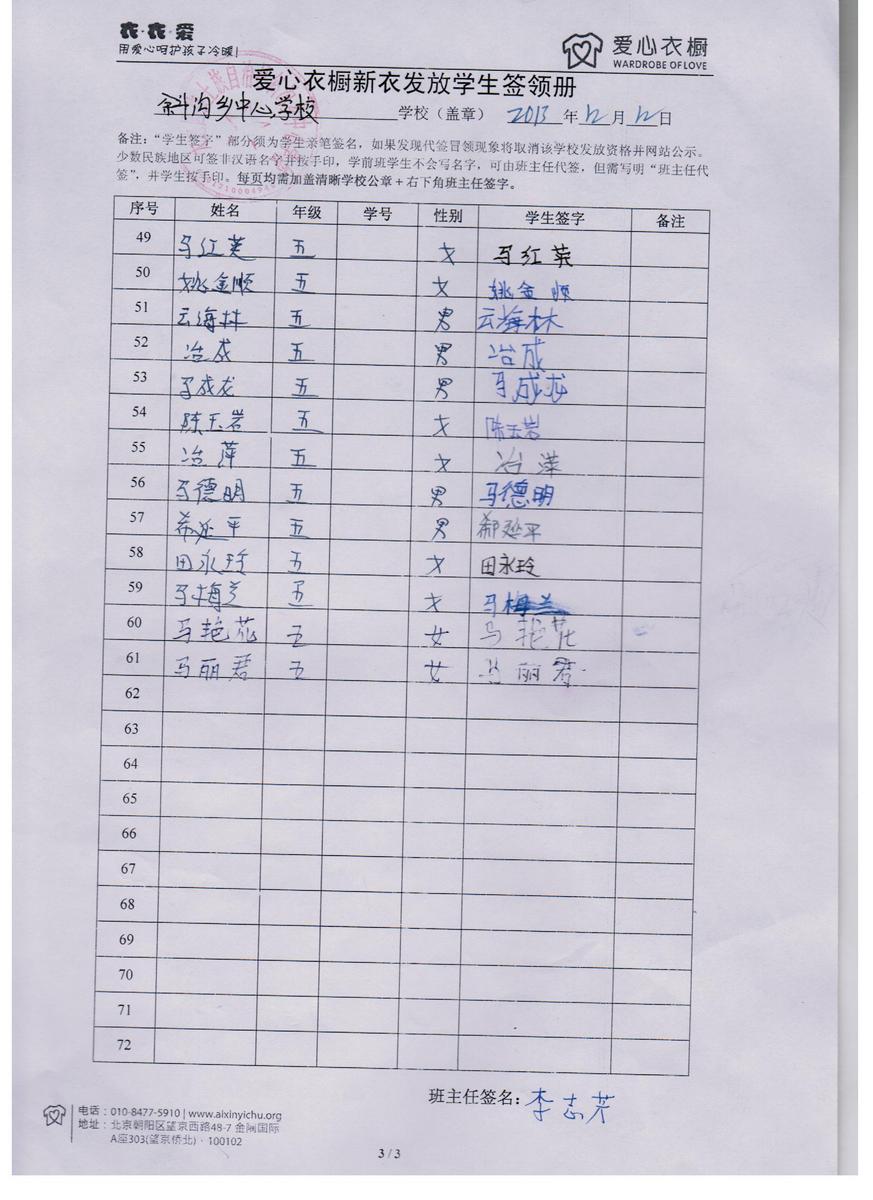 衣·衣·爱
用爱心呵护孩子冷暖!
爱心衣橱
WARDROBE OF LOVE
爱心衣橱新衣发放学生签领册
斜沟乡中心学校 学校（盖章） 2013 年 12 月 12 日
备注：“学生签字”部分须为学生亲笔签名，如果发现代签冒领现象将取消该学校发放资格并网站公示。
少数民族地区可签非汉语名字并按手印，学前班学生不会写名字，可由班主任代签，但需写明“班主任代
签”，并学生按手印。每页均需加盖清晰学校公章＋右下角班主任签字。
序号 姓名 年级 学号 性别 学生签字 备注
49 马红英 五 女 马红英
50 姚金顺 五 女 姚金顺
51 云海林 五 男 云海林
52 冶成 五 男 冶成
53 马成龙 五 男 马成龙
54 陈玉岩 五 女 陈玉岩
55 冶萍 五 女 冶萍
56 马德明 五 男 马德明
57 五 男
58 田永玲 五 女 田永玲
59 马梅兰 五 女 马梅兰
60 马艳花 五 女 马艳花
61 马丽君 五 女 马丽君
62
63
64
65
66
67
68
69
70
71
72
班主任签名：李志芳
电话：010-8477-5910 | www.aixinyichu.org
地址：北京朝阳区望京西路48-7 金隅国际
A座303(望京桥北)·100102
3 / 3